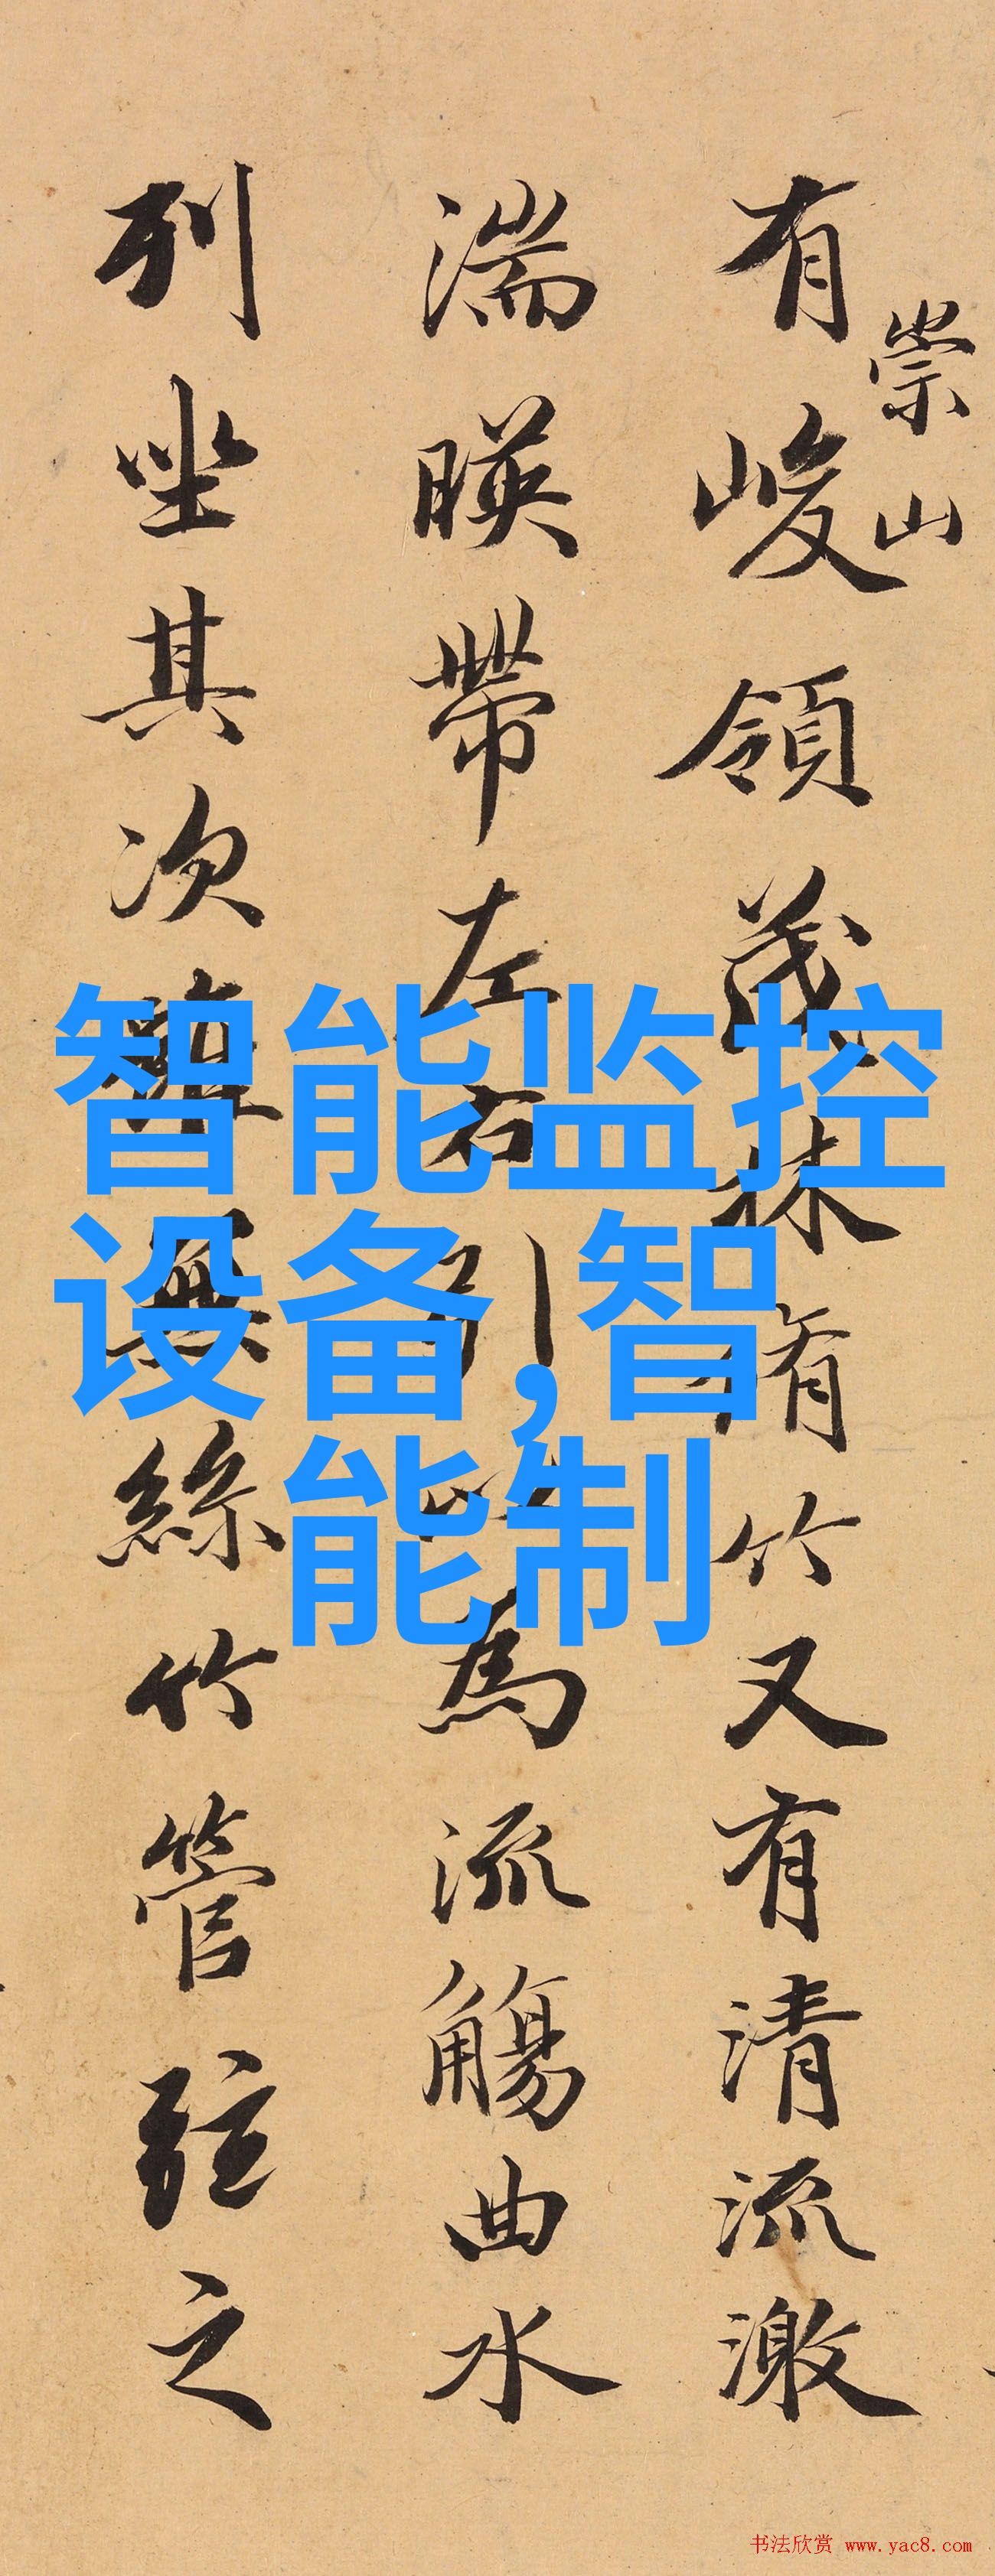 崇山
有峻領茂林脩竹又有清流激
湍暎帶左右引以為流觴曲水
列坐其次雖無絲竹管弦之
智能监控
设备,智
能制
书法欣赏 www.yac8.com